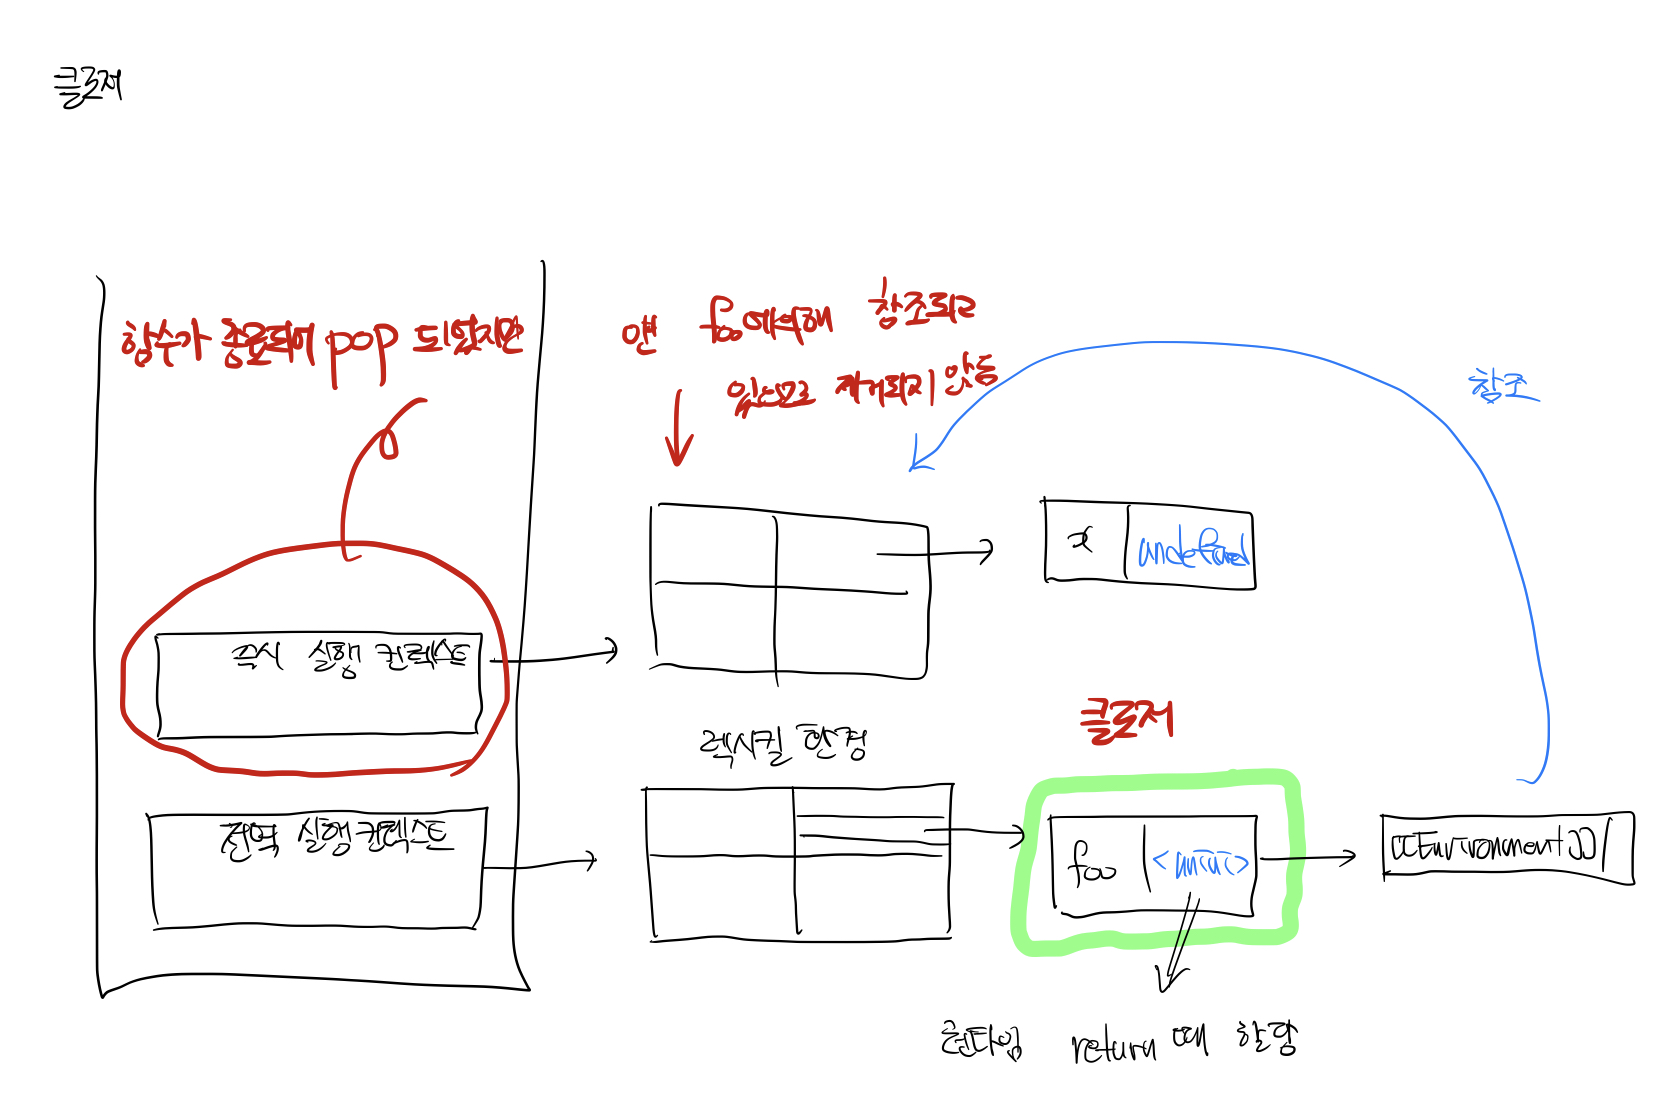 클로저
함수가 종료되어 pop 되었지만
얜 foo에의해 참조되고
있으므로 제거되지 않음
참조
x
undefined
즉시 실행 컨텍스트
렉시컬 환경
클로저
전역 실행 컨텍스트
foo
[[Environment]]
런타임 return 때 할당